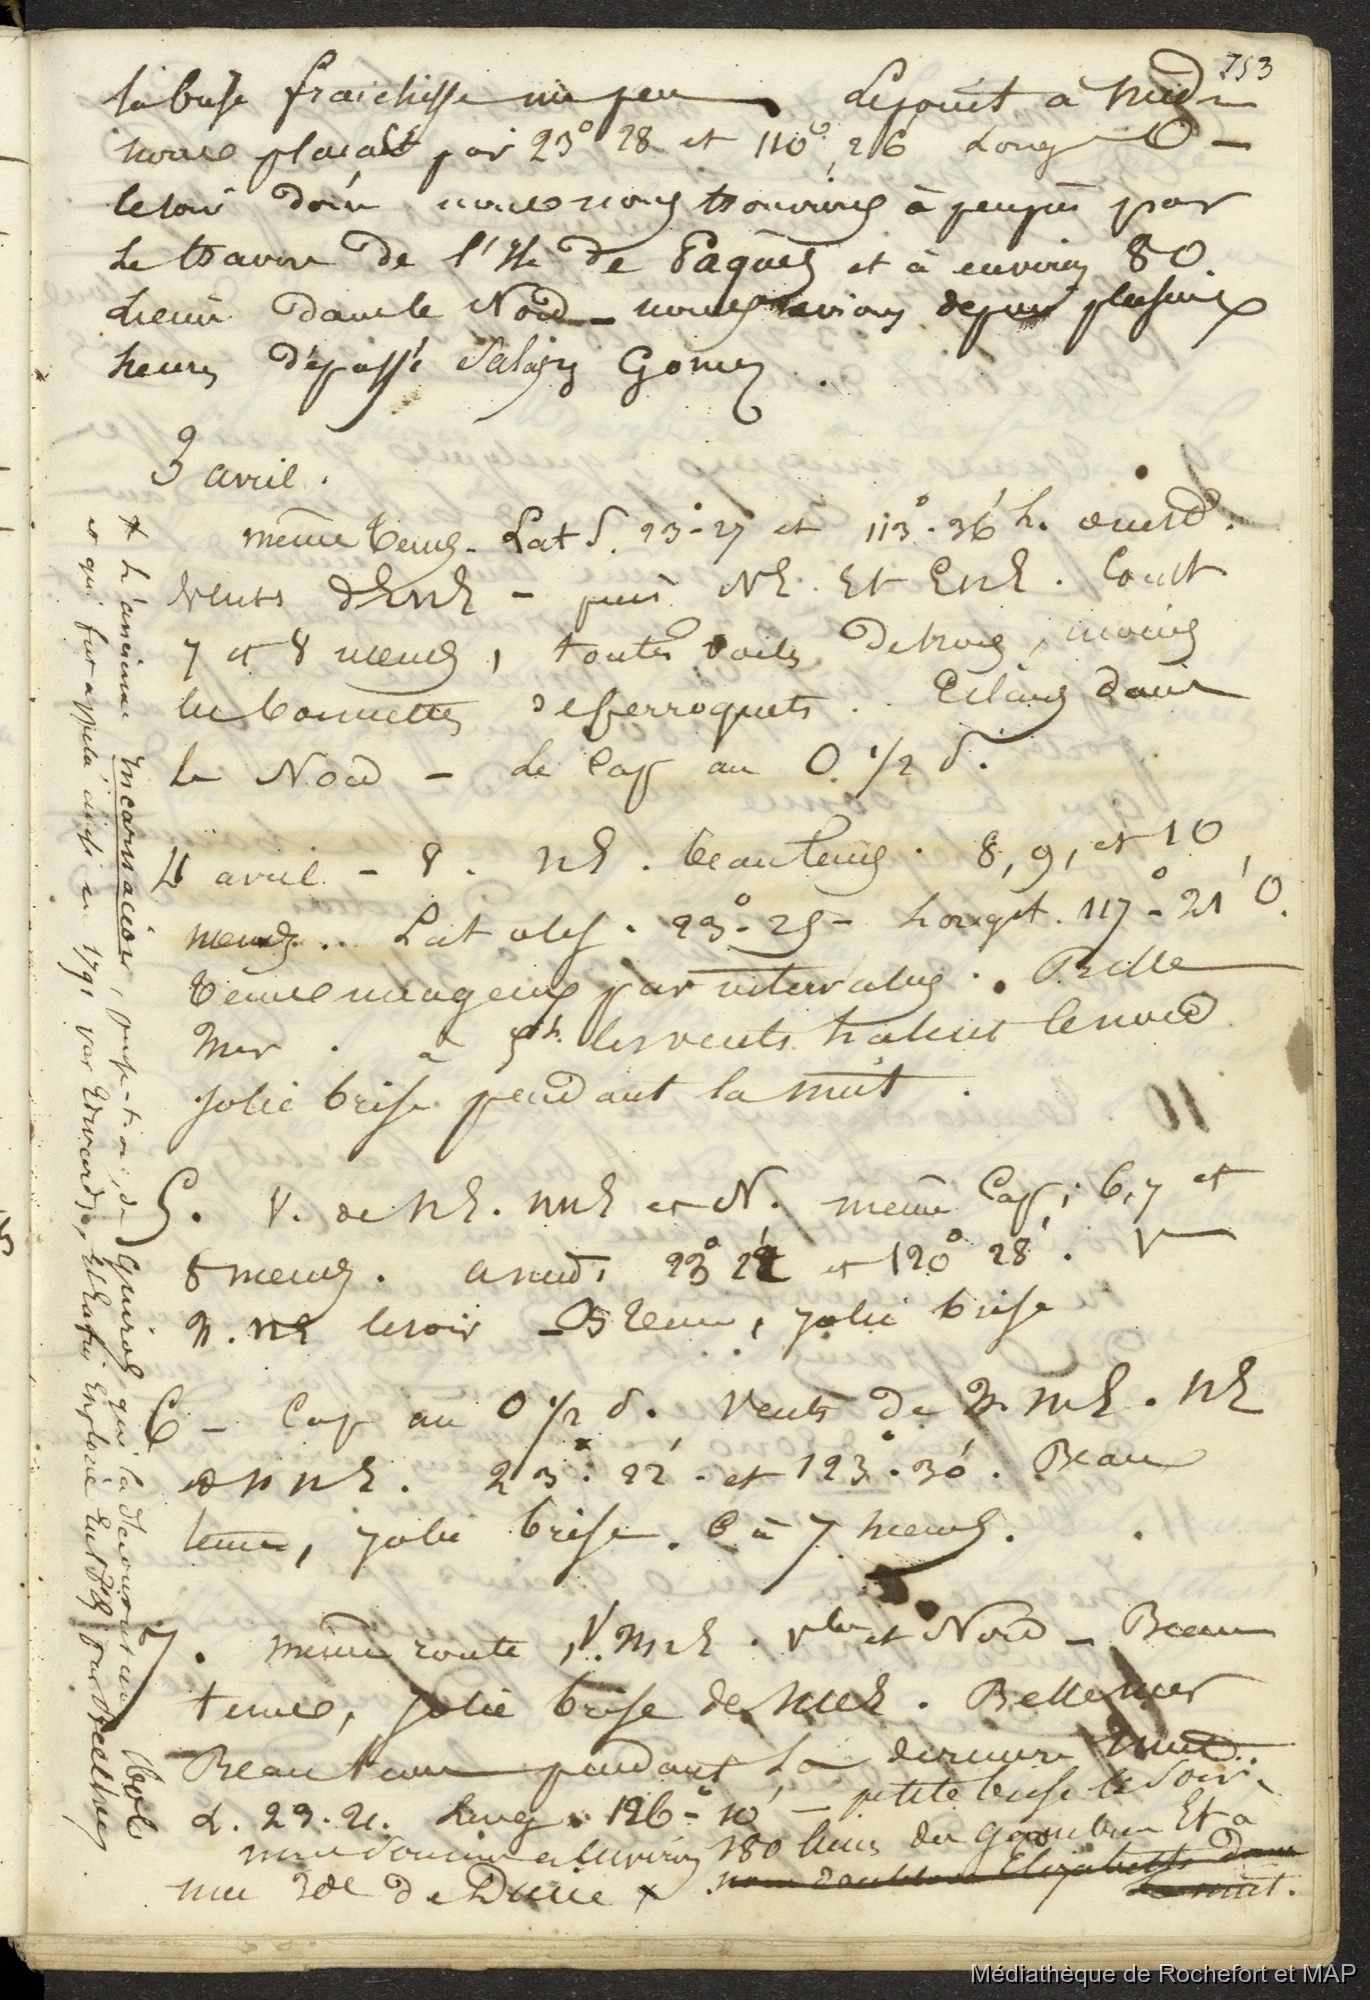 753
la brise fraichisse un peu. Le point à midi
nous plaçait par 23° 28 et 110°, 26 Long O -
le soir donc nous nous trouvions à peu près par
le travers de l'Ile de Pâques et à environ 80
lieues dans le Nord - nous avions depuis plusieurs
heures dépassé Salas y Gomez.
3 avril.
même temps. Lat S. 23°-27 et 113°-36' h. ouest.
Vents d'ENE - puis NE. Et ENE. Courut
7 et 8 nœuds, toutes voiles dehors, moins
les bonnettes de perroquets. Eclairs dans
le Nord - le Cap au O. 1/2 S.
4 avril - V. NE. beau temps. 8, 9, et 10
nœuds.. Lat obs. 23°-25 - Longit. 117°-21' O.
Temps nuageux par intervalles. Belle
Mer. à 5h. les vents halent le nord
jolie brise pendant la nuit.
5. V. de NE. NNE et N. même Cap; 6, 7 et
8 nœuds. à midi 23° 22 et 120° 28'. V
N. NE le soir - B temps, jolie brise
6 - Cap au O 1/2 S. Vents de N. NNE. NE
et NNE. 23°. 22'. et 123°. 30'. Beau
temps, jolie brise. 6 à 7 nœuds.
7. même route, V. NNE. et Nord - Beau
temps, jolie brise de NNE. Belle mer
Beau temps pendant la dernière nuit.
L. 23. 21. Long. 126° 10' - petite brise le soir.
nous sommes à environ 180 lieues des Gambier Et à
une 30e de Ducie x
la nuit.
x L'ancienne Incarnacion, de Quiros qui la découvrit
et qui fut appelé ainsi en 1791 par Edwards, Et enfin Explorée En 1825 par Beechey